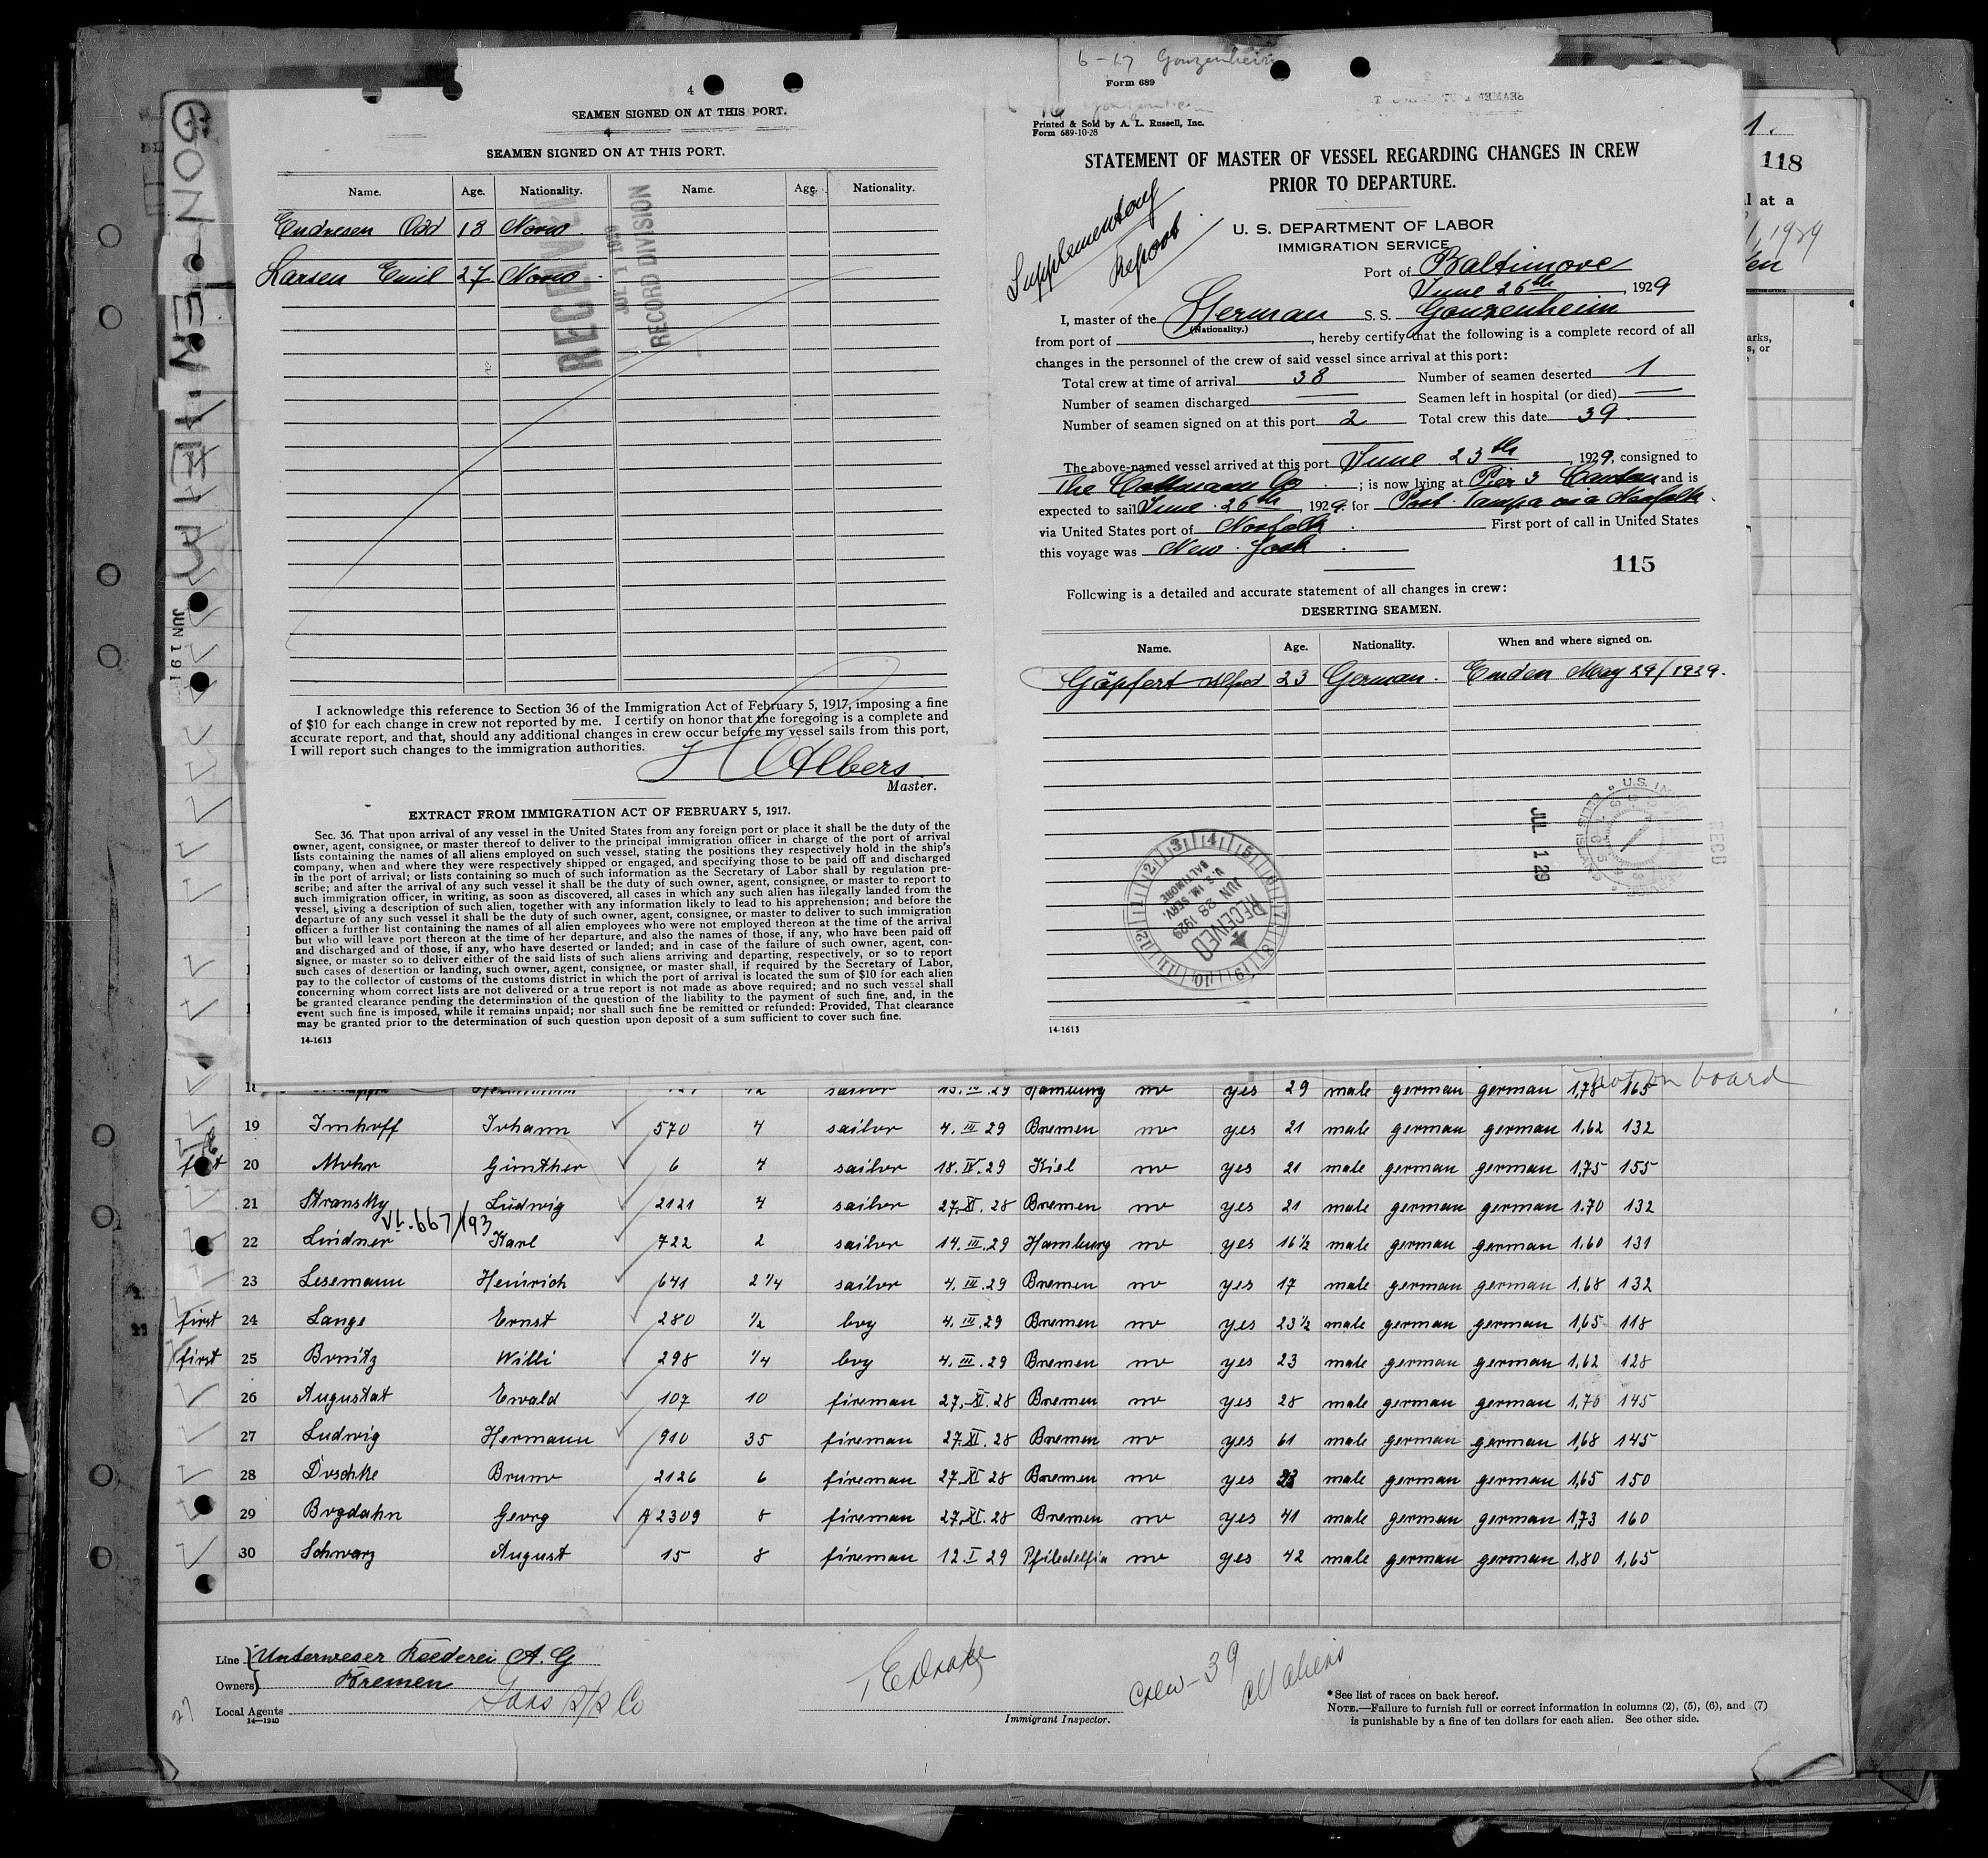 GONZENHEIM
JUN 19 1
4
SEAMEN SIGNED ON AT THIS PORT.
4
SEAMEN SIGNED ON AT THIS PORT.
Name. Age. Nationality. Name. Age. Nationality.
Endresen Odd 18 Norw.
Larsen Emil 27 Norw.
RECEIVED
JUL 1 1929
RECORD DIVISION
I acknowledge this reference to Section 36 of the Immigration Act of February 5, 1917, imposing a fine
of $10 for each change in crew not reported by me. I certify on honor that the foregoing is a complete and
accurate report, and that, should any additional changes in crew occur before my vessel sails from this port,
I will report such changes to the immigration authorities.
H Albers
Master.
EXTRACT FROM IMMIGRATION ACT OF FEBRUARY 5, 1917.
Sec. 36. That upon arrival of any vessel in the United States from any foreign port or place it shall be the duty of the
owner, agent, consignee, or master thereof to deliver to the principal immigration officer in charge of the port of arrival
lists containing the names of all aliens employed on such vessel, stating the positions they respectively hold in the ship's
company, when and where they were respectively shipped or engaged, and specifying those to be paid off and discharged
in the port of arrival; or lists containing so much of such information as the Secretary of Labor shall by regulation pre-
scribe; and after the arrival of any such vessel it shall be the duty of such owner, agent, consignee, or master to report to
such immigration officer, in writing, as soon as discovered, all cases in which any such alien has illegally landed from the
vessel, giving a description of such alien, together with any information likely to lead to his apprehension; and before the
departure of any such vessel it shall be the duty of such owner, agent, consignee, or master to deliver to such immigration
officer a further list containing the names of all alien employees who were not employed thereon at the time of the arrival
but who will leave port thereon at the time of her departure, and also the names of those, if any, who have been paid off
and discharged and of those, if any, who have deserted or landed; and in case of the failure of such owner, agent, con-
signee, or master so to deliver either of the said lists of such aliens arriving and departing, respectively, or so to report
such cases of desertion or landing, such owner, agent, consignee, or master shall, if required by the Secretary of Labor,
pay to the collector of customs of the customs district in which the port of arrival is located the sum of $10 for each alien
concerning whom correct lists are not delivered or a true report is not made as above required; and no such vessel shall
be granted clearance pending the determination of the question of the liability to the payment of such fine, and, in the
event such fine is imposed, while it remains unpaid; nor shall such fine be remitted or refunded: Provided, That clearance
may be granted prior to the determination of such question upon deposit of a sum sufficient to cover such fine.
14-1613
6-17 Gonzenheim
Form 689
Printed & Sold by A. L. Russell, Inc.
Form 689-10-28
STATEMENT OF MASTER OF VESSEL REGARDING CHANGES IN CREW
PRIOR TO DEPARTURE.
Supplementary
Report
U. S. DEPARTMENT OF LABOR
IMMIGRATION SERVICE
Port of Baltimore
June 26th, 1929
I, master of the German S. S. Gonzenheim
(Nationality.)
from port of , hereby certify that the following is a complete record of all
changes in the personnel of the crew of said vessel since arrival at this port:
Total crew at time of arrival 38 Number of seamen deserted 1
Number of seamen discharged — Seamen left in hospital (or died) —
Number of seamen signed on at this port 2 Total crew this date 39.
The above-named vessel arrived at this port June 23th, 1929, consigned to
The Cottmann Co ; is now lying at Pier 3 Canton and is
expected to sail June 26th, 1929. for Port Tampa via Norfolk
via United States port of Norfolk. First port of call in United States
this voyage was New York.
115
Following is a detailed and accurate statement of all changes in crew:
DESERTING SEAMEN.
Name. Age. Nationality. When and where signed on.
Göpfert Alfred 23 German. Emden May 29/1929.
RECEIVED
JUN 28 1929
U. S. IM. SERV.
BALTIMORE
JUL 1 29
REC'D
14-1613
1.
118
l at a
1, 1929
en
arks,
s, or
sailor 13. III. 29 Hamburg no yes 29 male german german 1,78 165 not on board
19 Imhoff Johann 570 4 sailor 4. III 29 Bremen no yes 21 male german german 1,62 132
20 Mohr Günther 6 4 sailor 18. IV. 29 Kiel no yes 21 male german german 1,75 155
21 Stransky Ludwig 2121 4 sailor 27. XI. 28 Bremen no yes 21 male german german 1.70 132
VL. 667/193
22 Lindner Karl 722 2 sailor 14. III. 29 Hamburg no yes 16 1/2 male german german 1.60 131
23 Lesemann Heinrich 641 2 1/4 sailor 4. III. 29 Bremen no yes 17 male german german 1,68 132
first 24 Lange Ernst 280 1/2 boy 4. III. 29 Bremen no yes 23 1/2 male german german 1,65 118
first 25 Bonitz Willi 298 1/4 boy 4. III. 29 Bremen no yes 23 male german german 1,62 128
26 Augustat Ewald 107 10 fireman 27. XI. 28 Bremen no yes 28 male german german 1,70 145
27 Ludwig Hermann 910 35 fireman 27. XI. 28 Bremen no yes 61 male german german 1,68 145
28 Doschke Bruno 2126 6 fireman 27. XI 28 Bremen no yes 23 male german german 1,65 150
29 Bogdahn Georg A 2309 8 fireman 27. XI. 28 Bremen no yes 41 male german german 1,73 160
30 Schwarz August 15 8 fireman 12 I 29 Philadelfia no yes 42 male german german 1,80 1,65
Line Unterweser Reederei A. G
Owners Bremen
Local Agents
14—1240
Immigrant Inspector.
Crew - 39
all aliens
* See list of races on back hereof.
NOTE.—Failure to furnish full or correct information in columns (2), (5), (6), and (7)
is punishable by a fine of ten dollars for each alien. See other side.